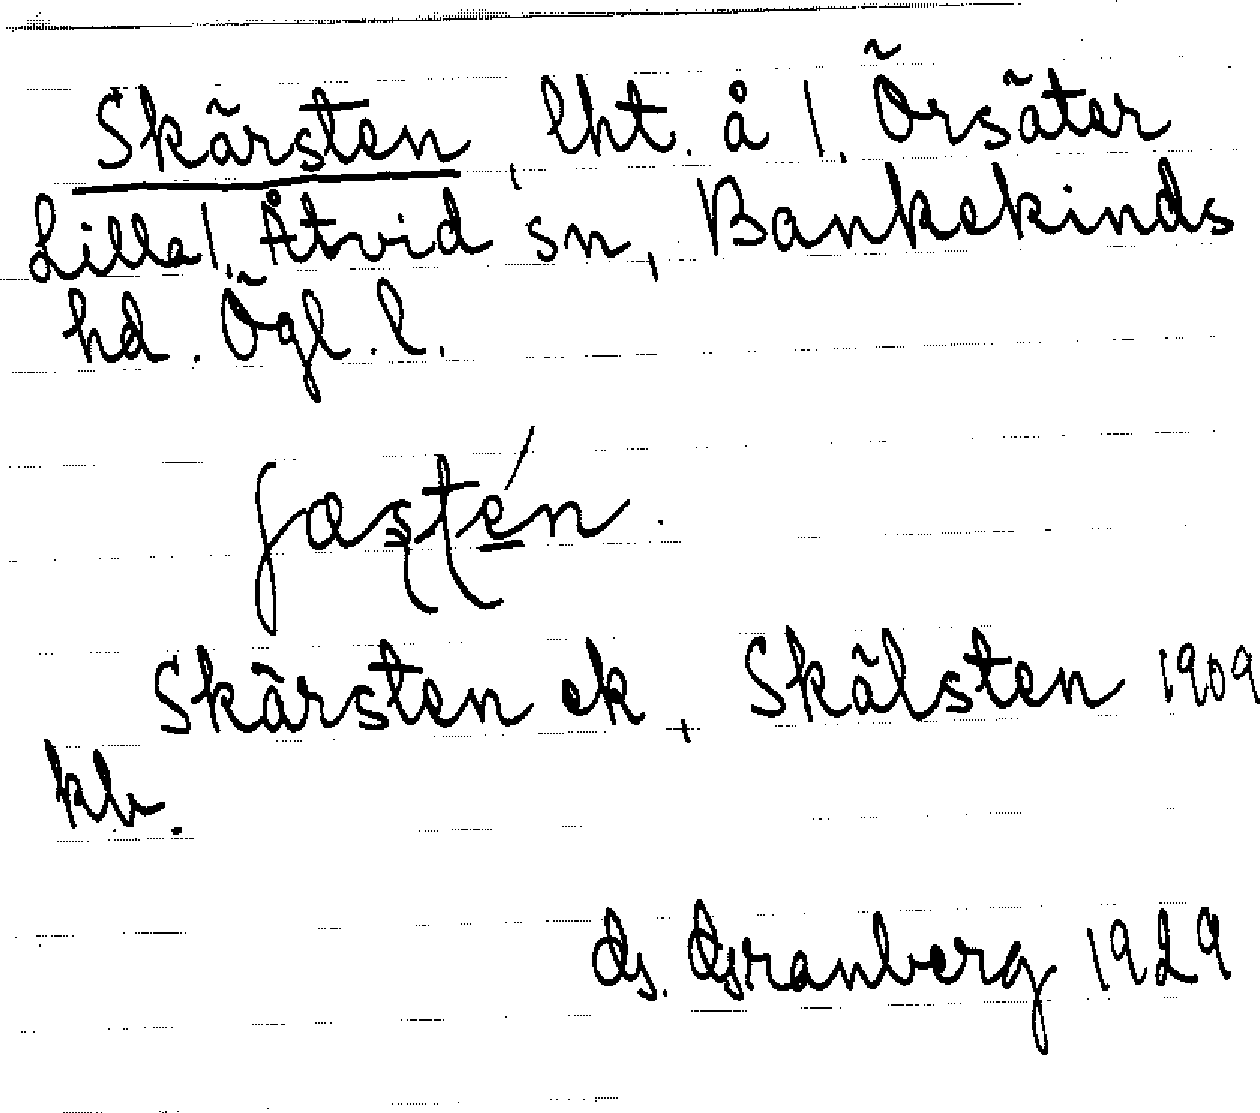 Skärsten, lht. å 1. Örsäter
Lilla 1. Åtvid sn, Bankekinds
hd. Ögl. l.
Skärsten ek, Skälsten 1909
kb.
G. Granberg 1929